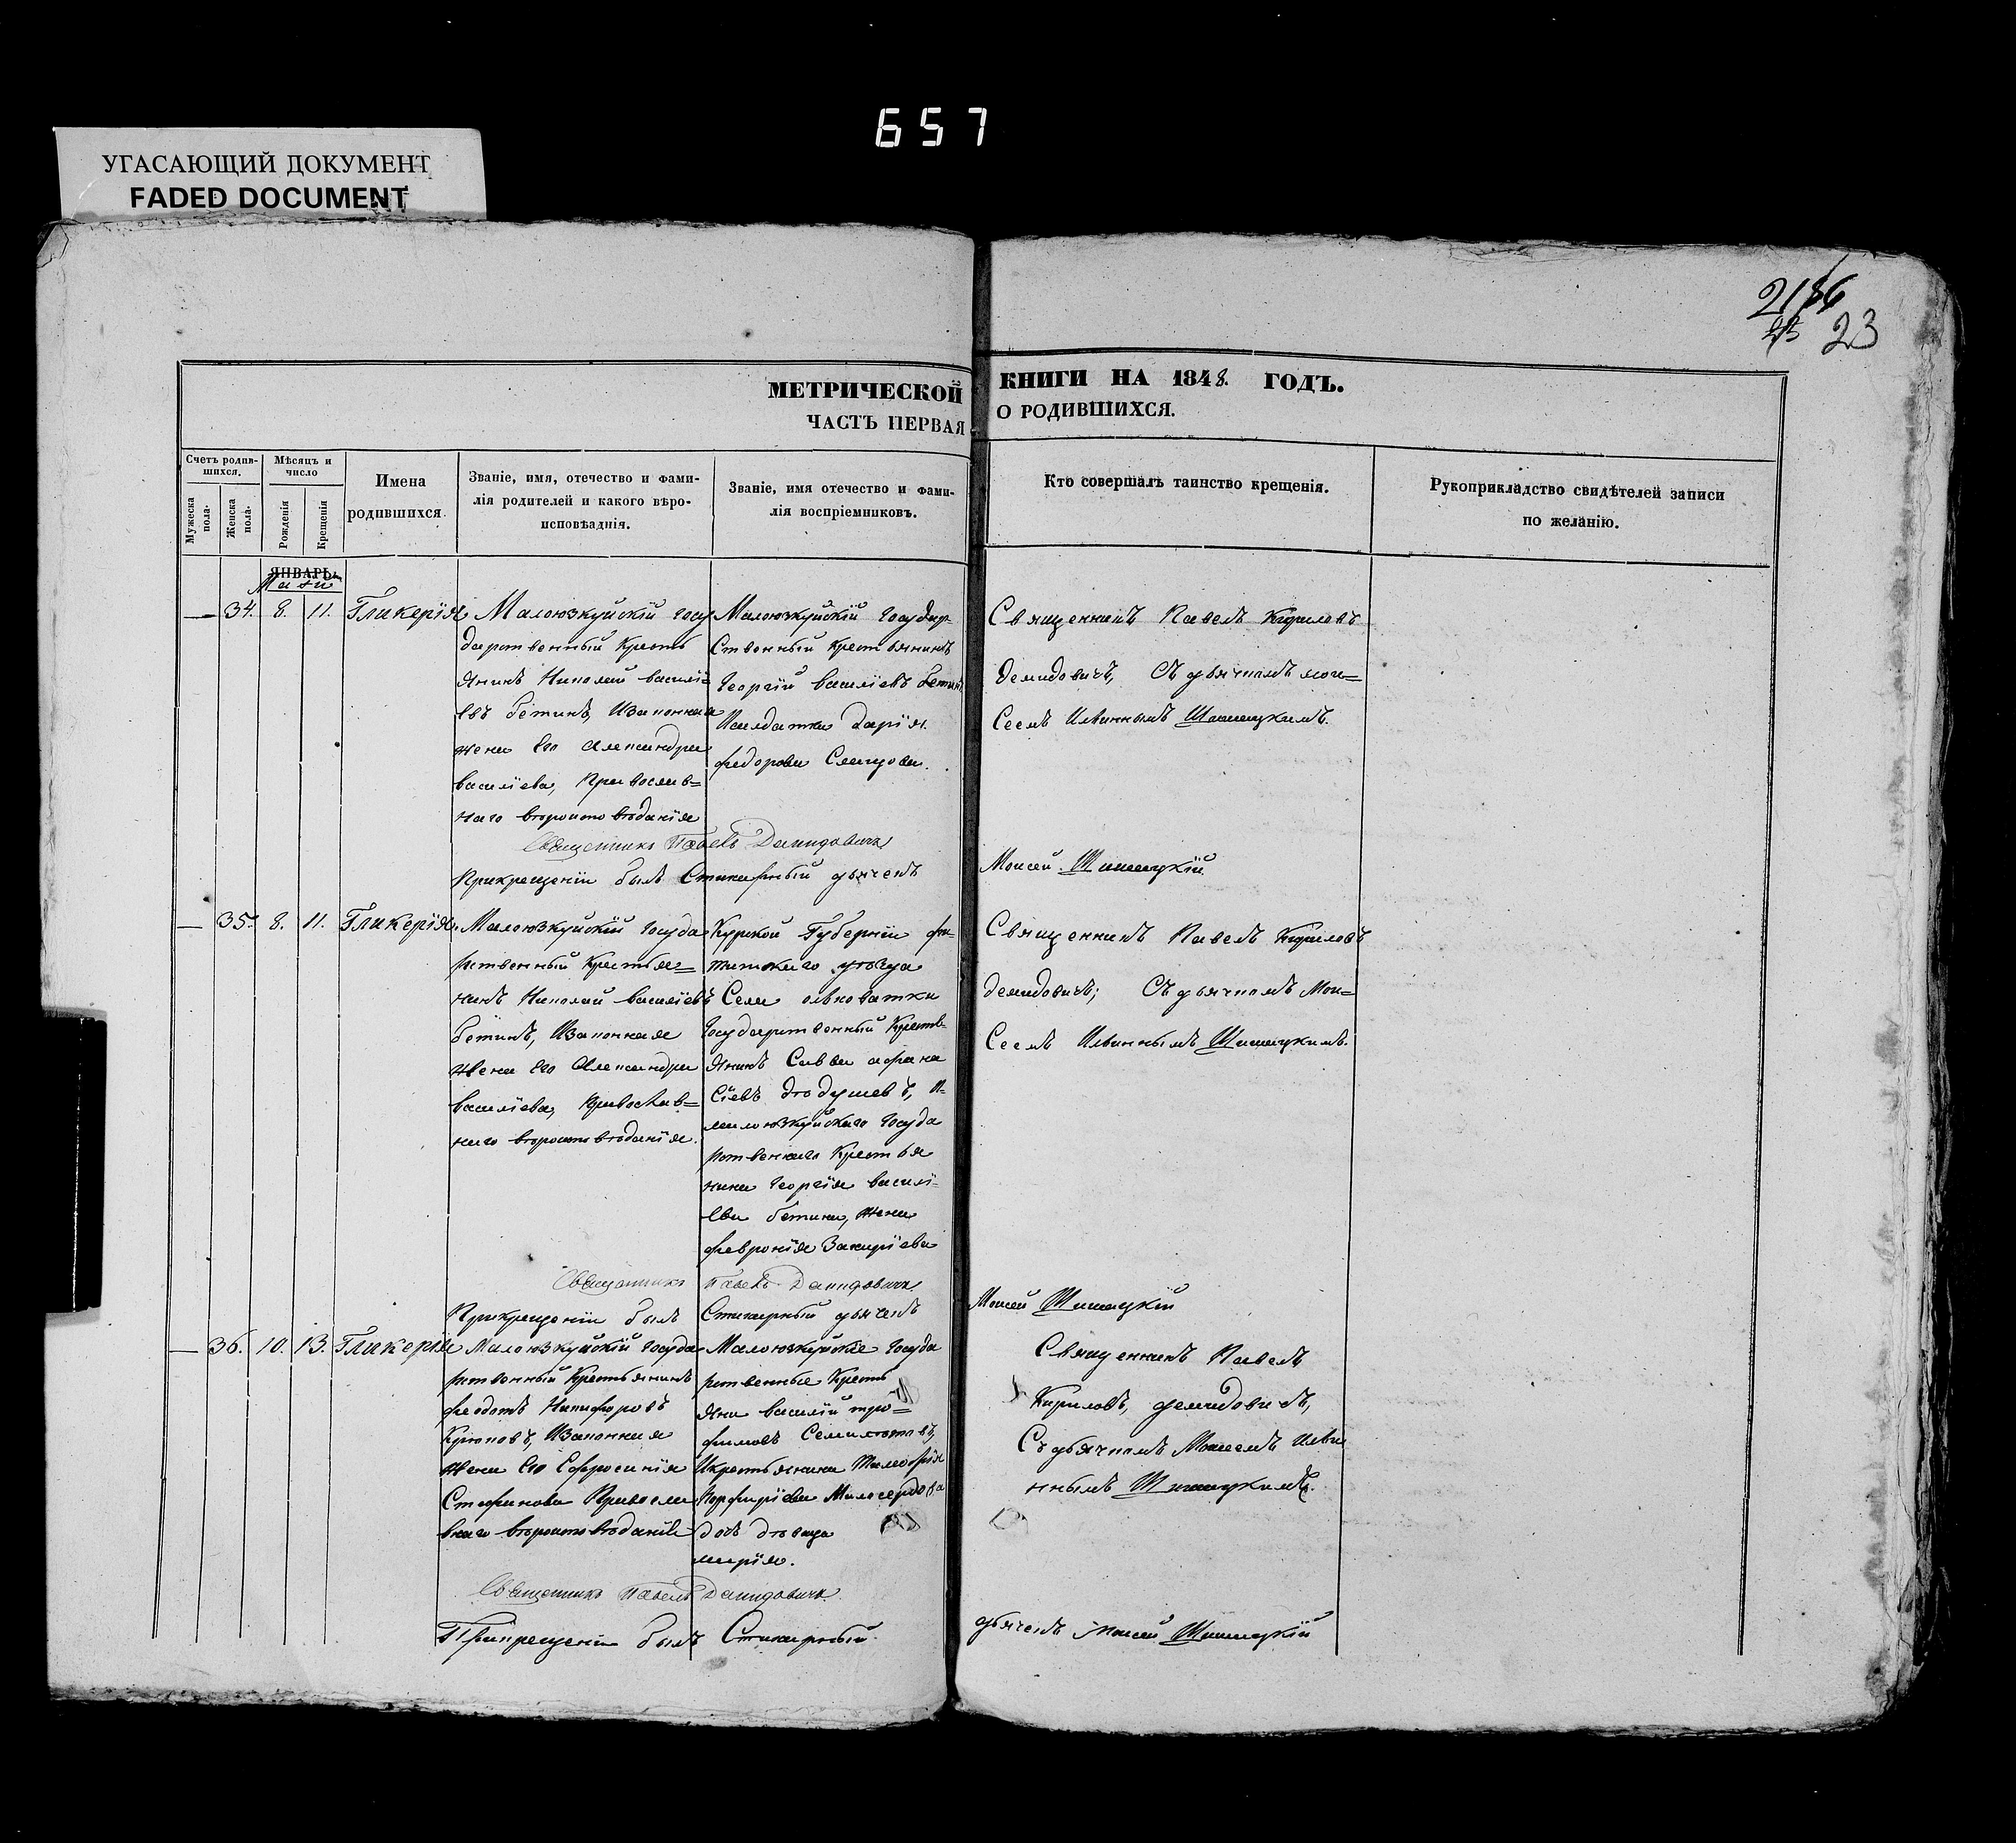 657
УГАСАЮЩИЙ ДОКУМЕНТ
FADED DOCUMENT
23
МЕТРИЧЕСКОЙ КНИГИ НА 1848. ГОДЪ.
ЧАСТЬ ПЕРВАЯ О РОДИВШИХСЯ.
Счетъ родив-
шихся.
Мужеска
пола.
Женска
пола.
Мѣсяцъ и
число
Рожденія
Крещенія
Имена
родившихся.
Званіе, имя, отечество и фами-
лія родителей и какого вѣро-
исповѣданія.
Званіе, имя отечество и фами-
лія воспріемниковъ.
Кто совершалъ таинство крещенія.
Рукоприкладство свидѣтелей записи
по желанію.
ЯНВАРЬ.
34. 8. 11. Гликерія
Малоюзкуйскій госу
дарственный кресть
янинъ Николай василі=
евъ бетинъ, Изаконная
жена Его Александра
василіева, Православ=
наго вѣроисповѣданія
Малоюзкуйскій Государ-
ственный крестьянинъ
Георгій василіевъ бетинъ
Исалдатка Дарія
федорова
Священникъ Павелъ Кириловъ
демидовичъ, Съ дьячкомъ мои=
Сеемъ Ильинымъ Шишацкимъ.
Священникъ Павелъ Демидовичъ
Прикрещеніи былъ Стихарный дьячекъ
Моисей Шишацкій
35. 8. 11. Гликерія.
Малоюзкуйскій Госуда
рственный крестья=
нинъ Николай василіевъ
бетинъ, Изаконная
жена Его Александра
василіева, православ=
наго вѣроисповѣданія.
Курской Губерніи фа-
тижскаго уѣзда
Села ольховатки
Государственный Кресть-
янинъ Савва афана
сіевъ Дѣдушевъ, И-
малоюзкуйскаго госуда
рственнаго крестья
нина Георгія василі-
ева бетина, жена
феврония Захаріева
Священникъ Павелъ Кириловъ
демидовичъ; Съ дьячкомъ Мои=
Сеемъ Ильинымъ Шишацкимъ.
Священникъ Павелъ Демидовичъ
Прикрещеніи былъ Стихарный дьячекъ
Моисей Шишацкій
36. 10. 13. Гликерія
Малоюзкуйскій Госуда
рственный Крестьянинъ
феодотъ Никифоровъ
Крюковъ, Изаконная
жена Его Ефросинія
Стефанова Правосла
внаго вѣроисповѣданія
Малоюзкуйскіе Госуда
рственные Кресть
яни василій тро=
фимовъ
Икрестьянина Тимофѣя
Порфиріева Милосердова
дочь дѣвица
марія.
Священникъ Павелъ
Кириловъ, демидовичъ,
Съ дьячкомъ Моисеемъ Ильи
ннымъ Шишацкимъ.
Священникъ Павелъ Демидовичъ
Прикрещеніи былъ Стихарный
дьячекъ Моисей Шишацкій